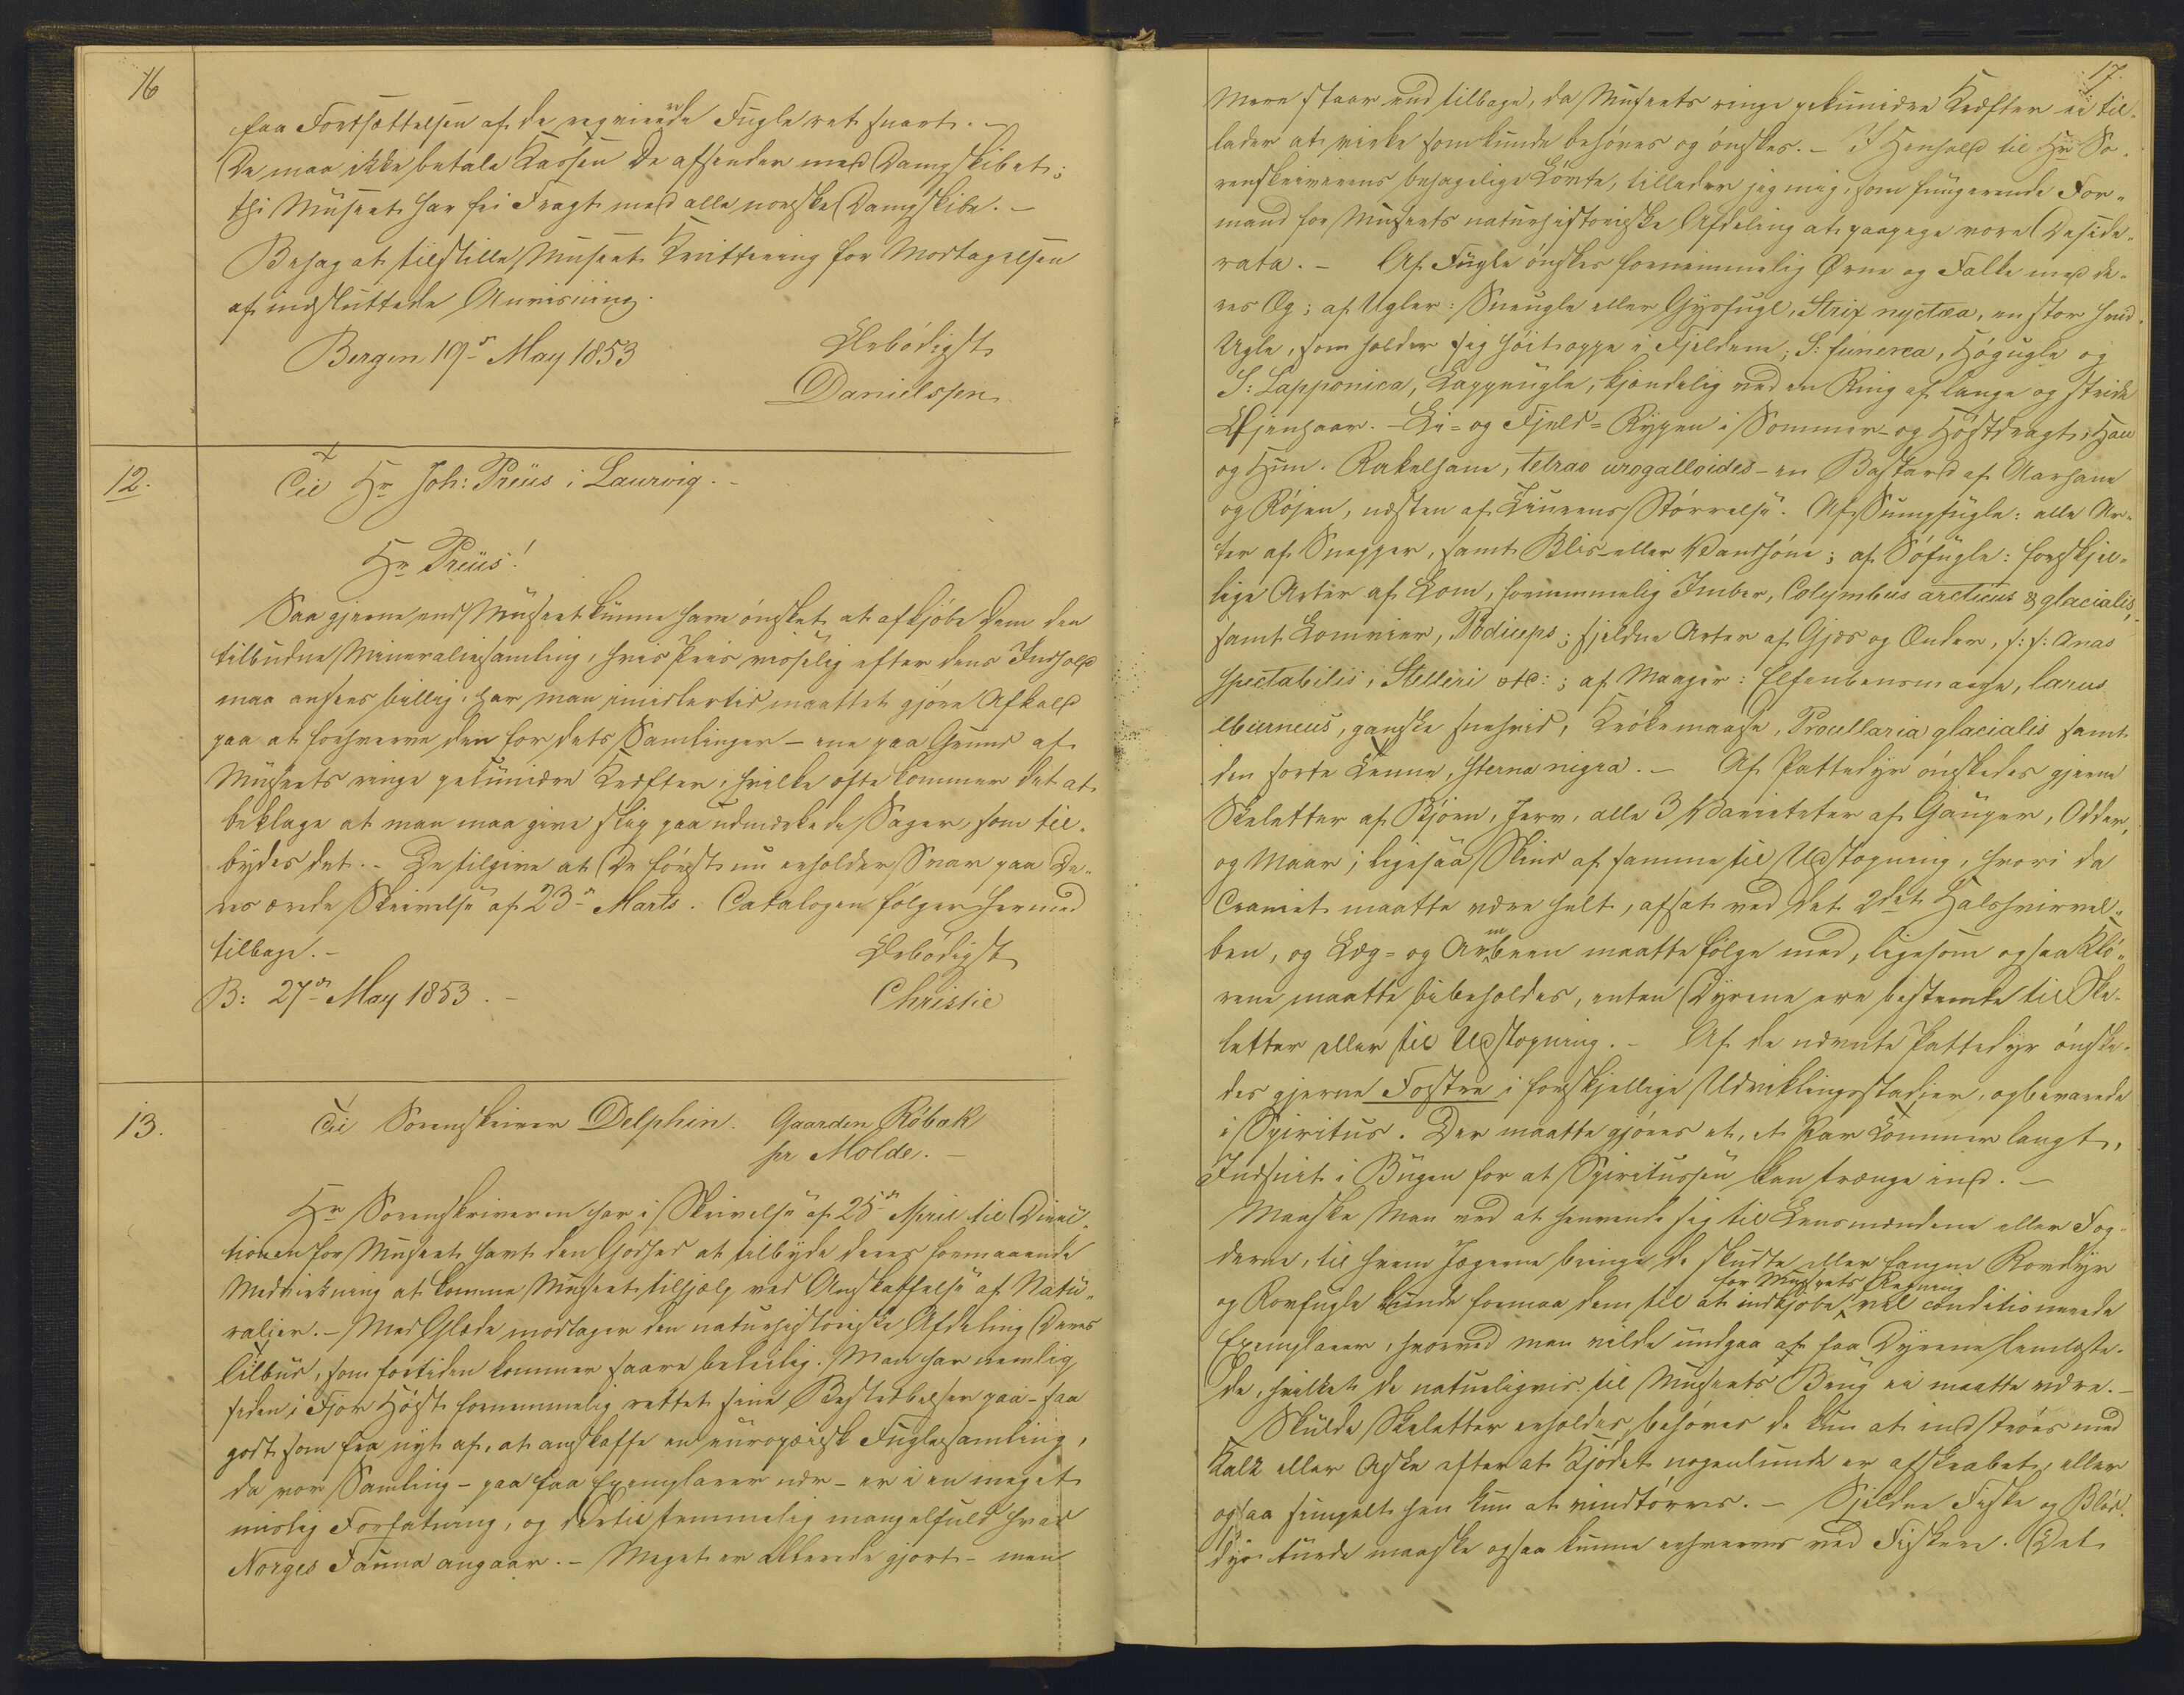 16
faa Fortsættelsen af de reqvirerede Fugle ret snart. —
De maa ikke betale Kassen De afsender med Dampskibet;
thi Museet har fri Fragt med alle norske Dampskibe. —
Behag at tilstille Museet Kvittering for Modtagelsen
af indsluttede Anvisning.
Bergen 19de May 1853
Ærbødigst
Danielssen
12.
Til Hr Joh: Preüs i Laurvig. -
Hr Preüs!
Saa gjerne end Museet kunne have ønsket at afkjøbe Dem den
tilbudne Mineraliesamling, hvis Priis visselig efter dens Indhold
maa ansees billig, har man imidlertid maattet gjøre Afkald
paa at erhverve den for dets Samlinger — ene paa Grund af
Museets ringe pekuniære Kræfter, hvilke ofte kommer det at
beklage at man maa give slip paa udmærkede Sager, som til-
bydes det. - De tilgive at De først nu erholder Svar paa De-
res ærede Skrivelse af 23de Marts. Catalogen følger hermed
tilbage. -
Ærbødigst
B: 27de May 1853. -
Christie
13.
Til Sorenskriver Delphin. Gaarden Röbak
pr Molde. -
Hr Sorenskriveren har i Skrivelse af 25de April til Direc-
tionen for Museet havt den Godhed at tilbyde deres formaaende
Medvirkning at komme Museet tilhjælp ved Anskaffelse af Natu-
ralier. - Med Glæde modtager den naturhistoriske Afdeling Deres
Tilbud, som fortiden kommer saare beleilig. Man har nemlig
siden i Fjor Høst fornemmelig rettet sine Bestræbelser paa - saa
godt som fra nyt af, at anskaffe en europæisk Fuglesamling,
da vor Samling - paa faa Exemplarer nær - er i en meget
mislig Forfatning, og dertil temmelig mangelfuld hvad
Norges Fauna angaar. - Meget er allerede gjort - men
17.
Mere staar end tilbage, da Museets ringe pekuniære Kræfter ei til-
lader at virke som kunde behøves og ønskes. - I Henhold til Hr So-
renskriverens behagelige Løvte, tillader jeg mig, som fungerende For-
mand for Museets naturhistoriske Afdeling at paapege vore Deside-
rata. - Af Fugle ønskes fornemmelig Ørne og Falke med de-
res Æg; af Ugler: Sneugle eller Gysfugl, Strix nyctæa, en stor hvid
Ugle, som holder sig høit oppe i Fjeldene; S: funerea, Høgugle og
S: Lapponica, Lapugle, kjendelig ved en Ring af lange og stride
Øjenhaar. - Li- og Fjeld-Rypen i Sommer- og Høstdragt, Han
og Hun. Rakelhane, tetrao urogalloides - en Bastard af Aarhane
og Røjen, næsten af Tiurens Størrelse. Af Sumpfugle: alle Ar-
ter af Snepper, samt Blis- eller Vandhøne; af Søfugle: forskjel-
lige Arter af Lom, fornemmelig Imber, Colymbus arcticus & glacialis,
samt Lomvier, Podiceps; sjeldne Arter af Gjæs og Ænder, s: s: Anas
spectabilis, Stelleri etc:; af Maager: Elfenbensmaage, larus
eburneus, ganske snehvid, Krökemaage, Procellaria glacialis samt
den sorte Terne, Sterna nigra. - Af Pattedyr ønskedes gjerne
Skeletter af Bjørn, Jerv, alle 3 Varieteter af Gauper, Odder,
og Maar; ligesaa Skind af samme til Udstopning, hvori da
Craniet maatte være helt, afsat ved det 2det Halshvirvel-
ben, og Læg- og Armbeen maatte følge med, ligesom ogsaa Klø-
rene maatte bibeholdes, enten Dyrene ere bestemte til Ske-
letter eller til Udstopning. - Af de nævnte Pattedyr ønske-
des gjerne Fostre i forskjellige Udviklingsstadier, opbevarede
i Spiritus. Der maatte gjøres et, et Par Tommer langt,
Indsnit i Bugen for at Spiritussen kan trænge ind. -
Maaske Man ved at henvende sig til Lensmændene eller Fog-
derne, til hvem Jægerne bringe de skudte eller fangne Rovdyr
for Museets Regning
og Rovfugle kunde formaa dem til at indkjøbe vel conditionerede
Exemplarer, hvorved man vilde undgaa at faa Dyrene lemlæste-
de, hvilket de naturligvis til Museets Brug ei maatte være. -
Skulde Skeletter erholdes, behøves de kun at indstrøes med
Kalk eller Aske efter at Kjødet nogenlunde er afskrabet, eller
ogsaa simpelt hen kun at vindtørres. - Sjeldne Fiske og Blød-
dyr turde maaske ogsaa kunne erhverves ved Fiskere. Det